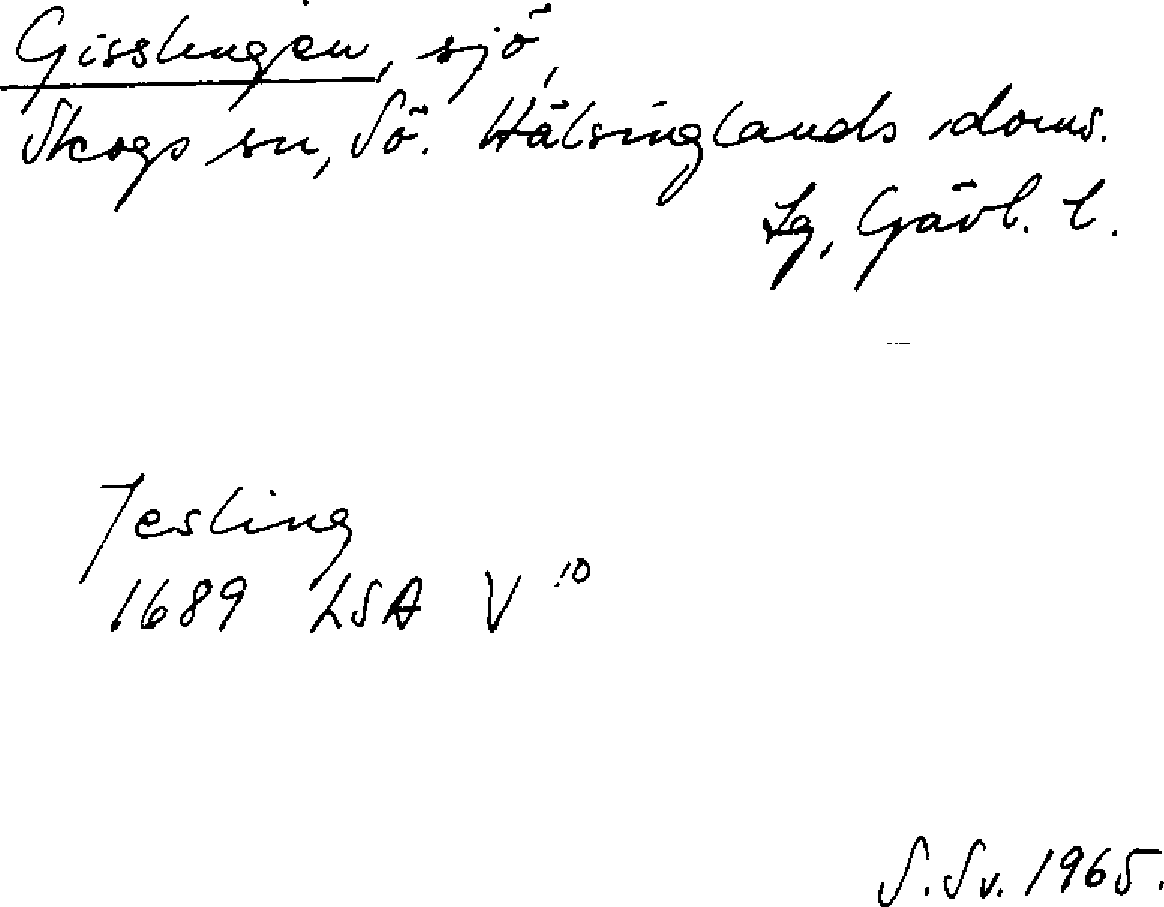 Gisslingen, sjö,
Skogs sn, Sö. Hälsinglands doms.
Lg, Gävl. l.
Jesling
1689 LSA V 10
S. Sv. 1965.